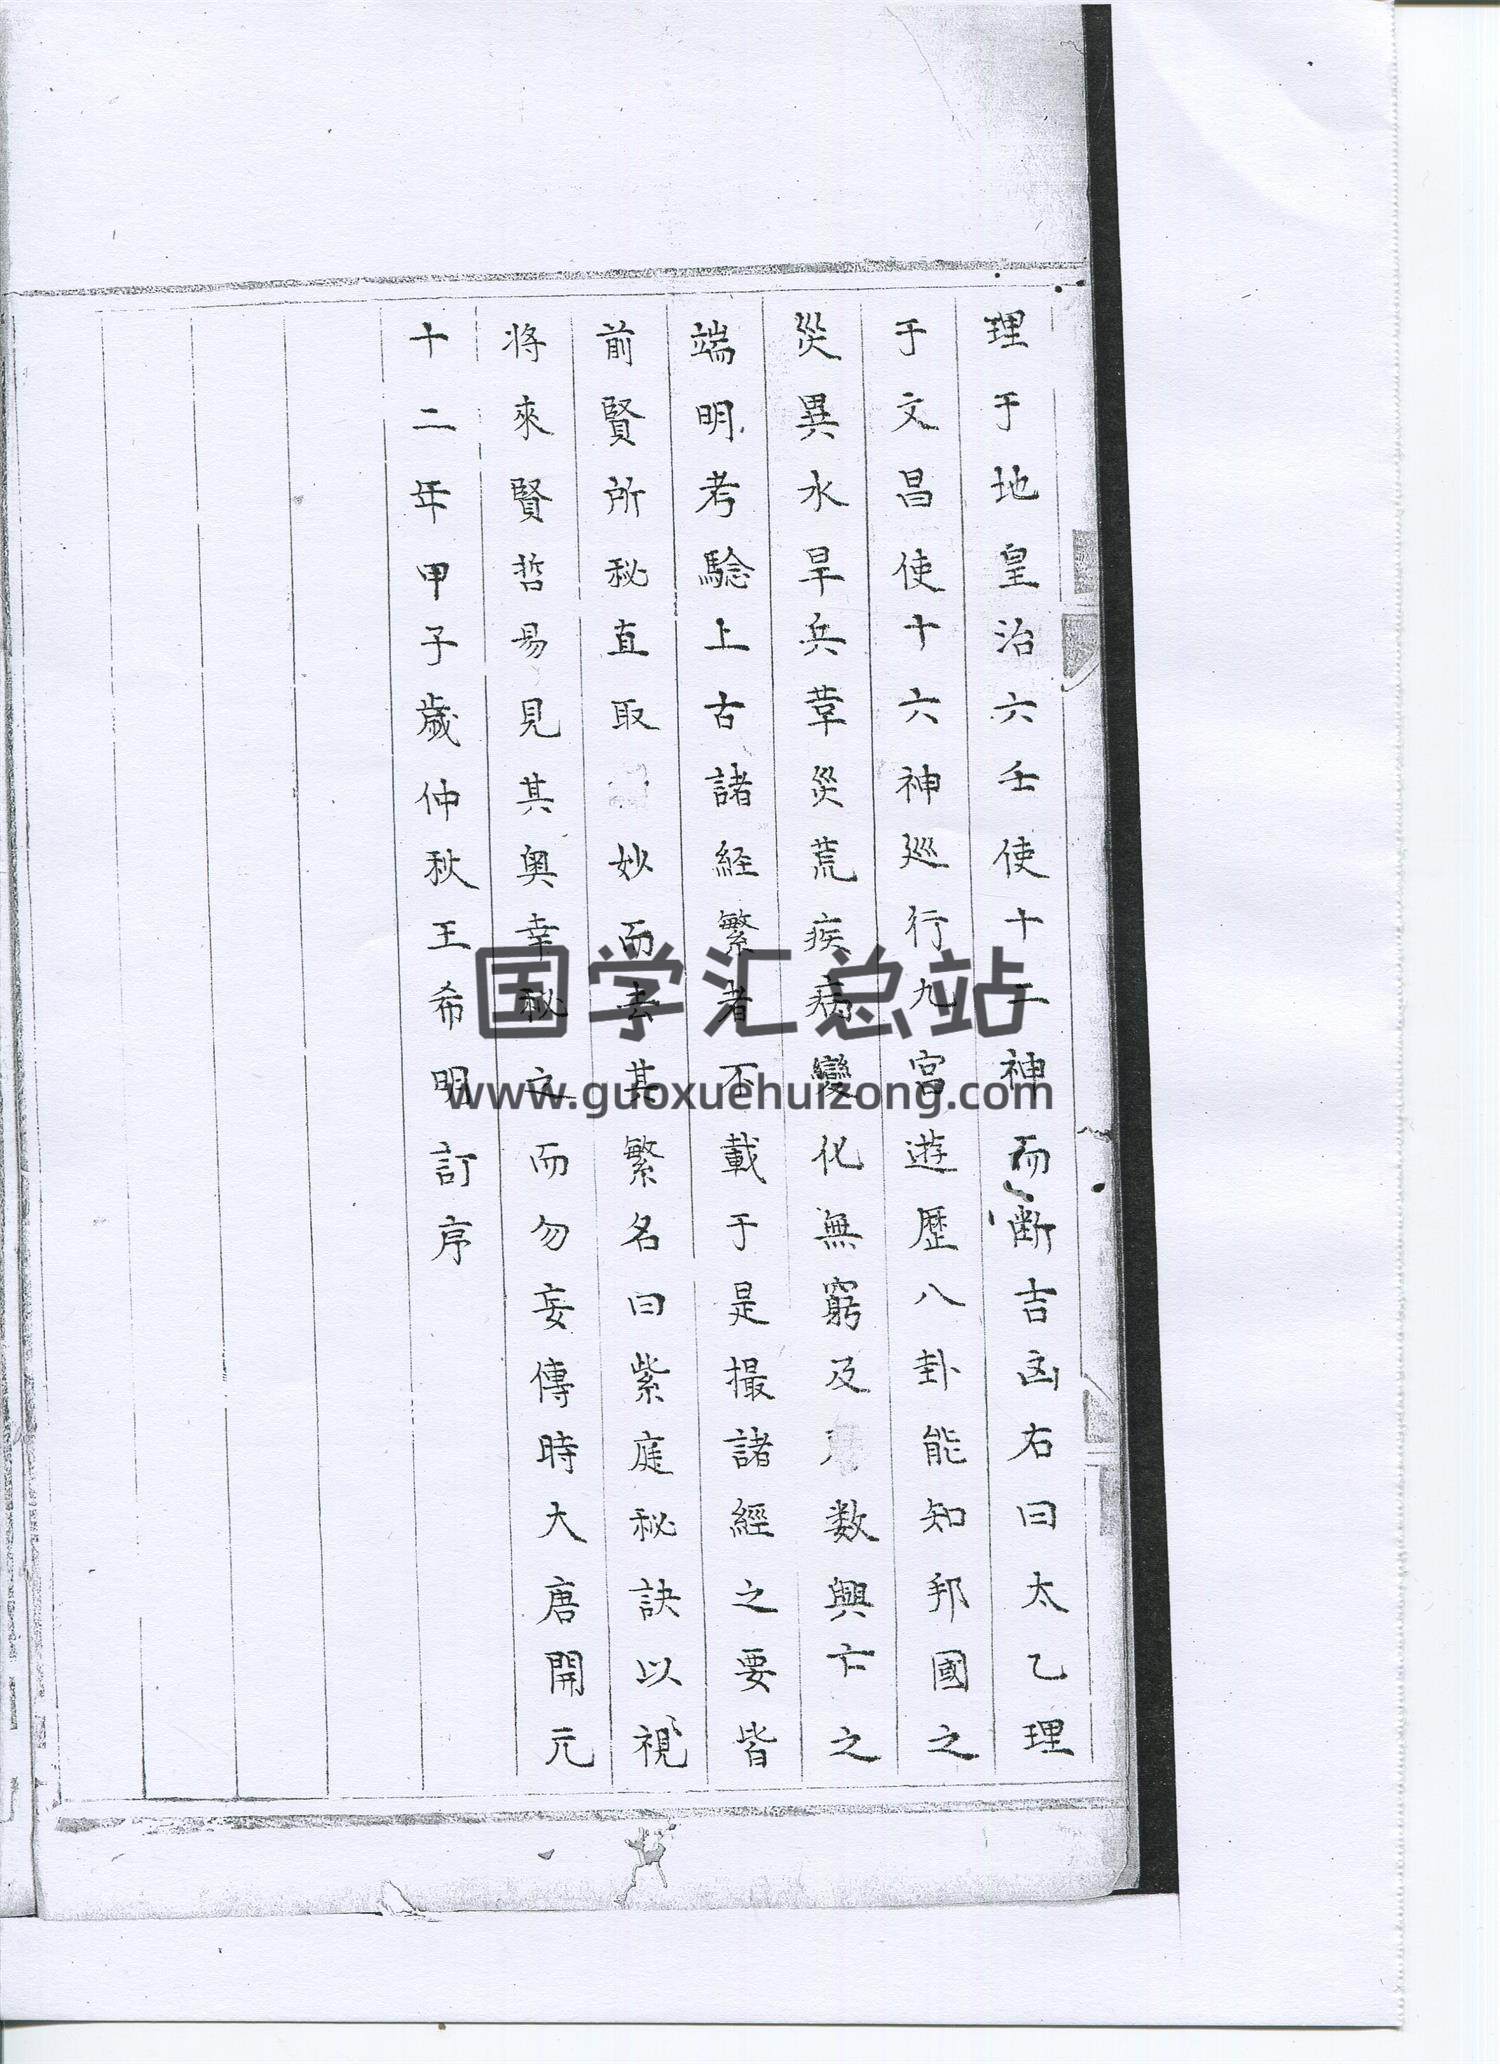 理于地皇治六壬使十二神而断吉凶右曰太乙理
于文昌使十六神廵行九宫遊歷八卦能知邦國之
災異水旱兵革災荒疾病變化無窮及数興亡之
端明考騐上古諸經繁者不載于是撮諸經之要皆
前賢所秘直取妙而去其繁名曰紫庭秘訣以視
将來賢哲易見其奥幸秘之而勿妄傳時大唐開元
十二年甲子歲仲秋王希明訂序
国学汇总站
www.guoxuehuizong.com